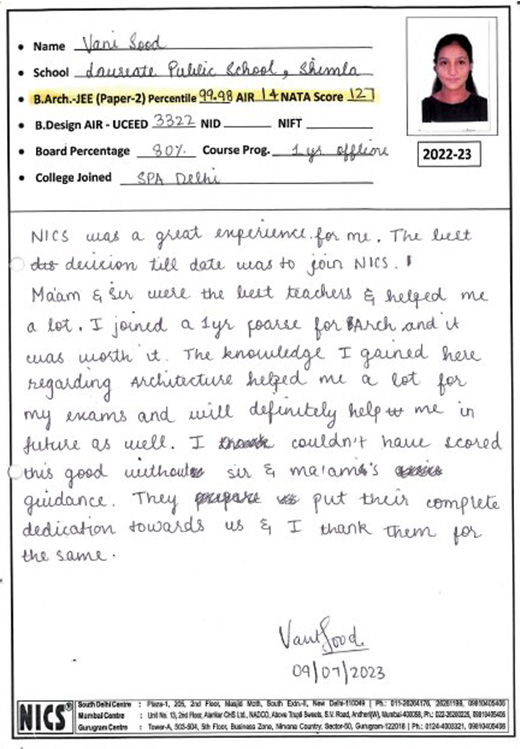 • Name Vani Sood
• School Laureate Public School, Shimla
• B.Arch.-JEE (Paper-2) Percentile 99.98 AIR 14 NATA Score 127
• B.Design AIR - UCEED 3322 NID ___ NIFT ___
• Board Percentage 80% Course Prog. 1 yr offline
• College Joined SPA Delhi
2022-23
NICS was a great experience for me. The best
decision till date was to join NICS.
Ma'am & Sir were the best teachers & helped me
a lot. I joined a 1yr coarse for BArch and it
was worth it. The knowledge I gained here
regarding Architecture helped me a lot for
my exams and will definitely help me in
future as well. I couldn't have scored
this good without sir & ma'am's
guidance. They put their complete
dedication towards us & I thank them for
the same.
Vani Sood
09/07/2023
NICS®
South Delhi Centre : Plaza-1, 205, 2nd Floor, Masjid Moth, South Extn.-II, New Delhi-110049 | Ph.: 011-26264176, 26261199, 09810405406
Mumbai Centre : Unit No. 13, 2nd Floor, Alankar CHS Ltd., NADCO, Above Trupti Sweets, S.V. Road, Andheri(W), Mumbai-400058, Ph.: 022-26280225, 09810405406
Gurugram Centre : Tower-A, 503-504, 5th Floor, Business Zone, Nirvana Country, Sector-50, Gurugram-122018 | Ph.: 0124-4003321, 09810405406